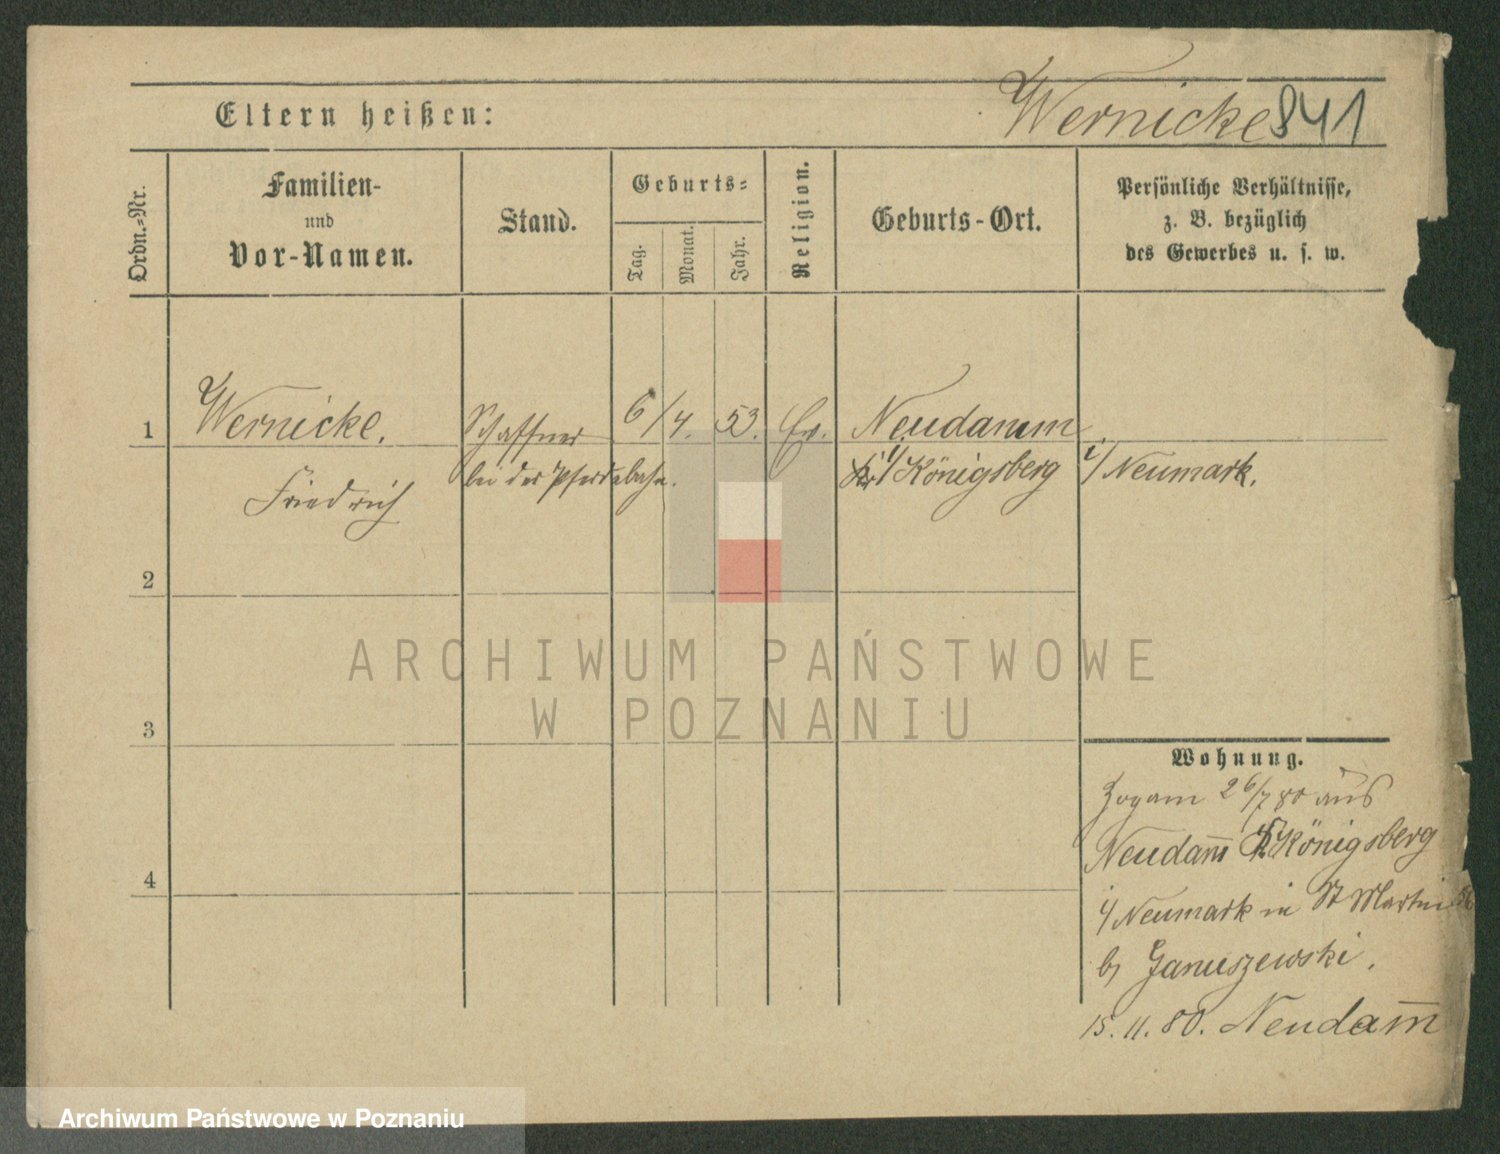 Eltern heißen:
Wernicke 841
Ordn.-Nr.
Familien-
und
Vor-Namen.
Stand.
Geburts-
Tag.
Monat.
Jahr.
Religion.
Geburts-Ort.
Persönliche Verhältnisse,
z. B. bezüglich
des Gewerbes u. s. w.
1
Wernicke.
Friedrich
Schaffner
bei der Pferdebahn.
6/4. 53.
Ev.
Neudamm
i/Königsberg i/Neumark.
2
3
4
ARCHIWUM PAŃSTWOWE
W POZNANIU
Wohnung.
Zogam 26/7 80 aus
Neudam̅ Königsberg
i/Neumark in St Martin 56
b/ Januszewski.
15. 11. 80. Neudam̅
Archiwum Państwowe w Poznaniu